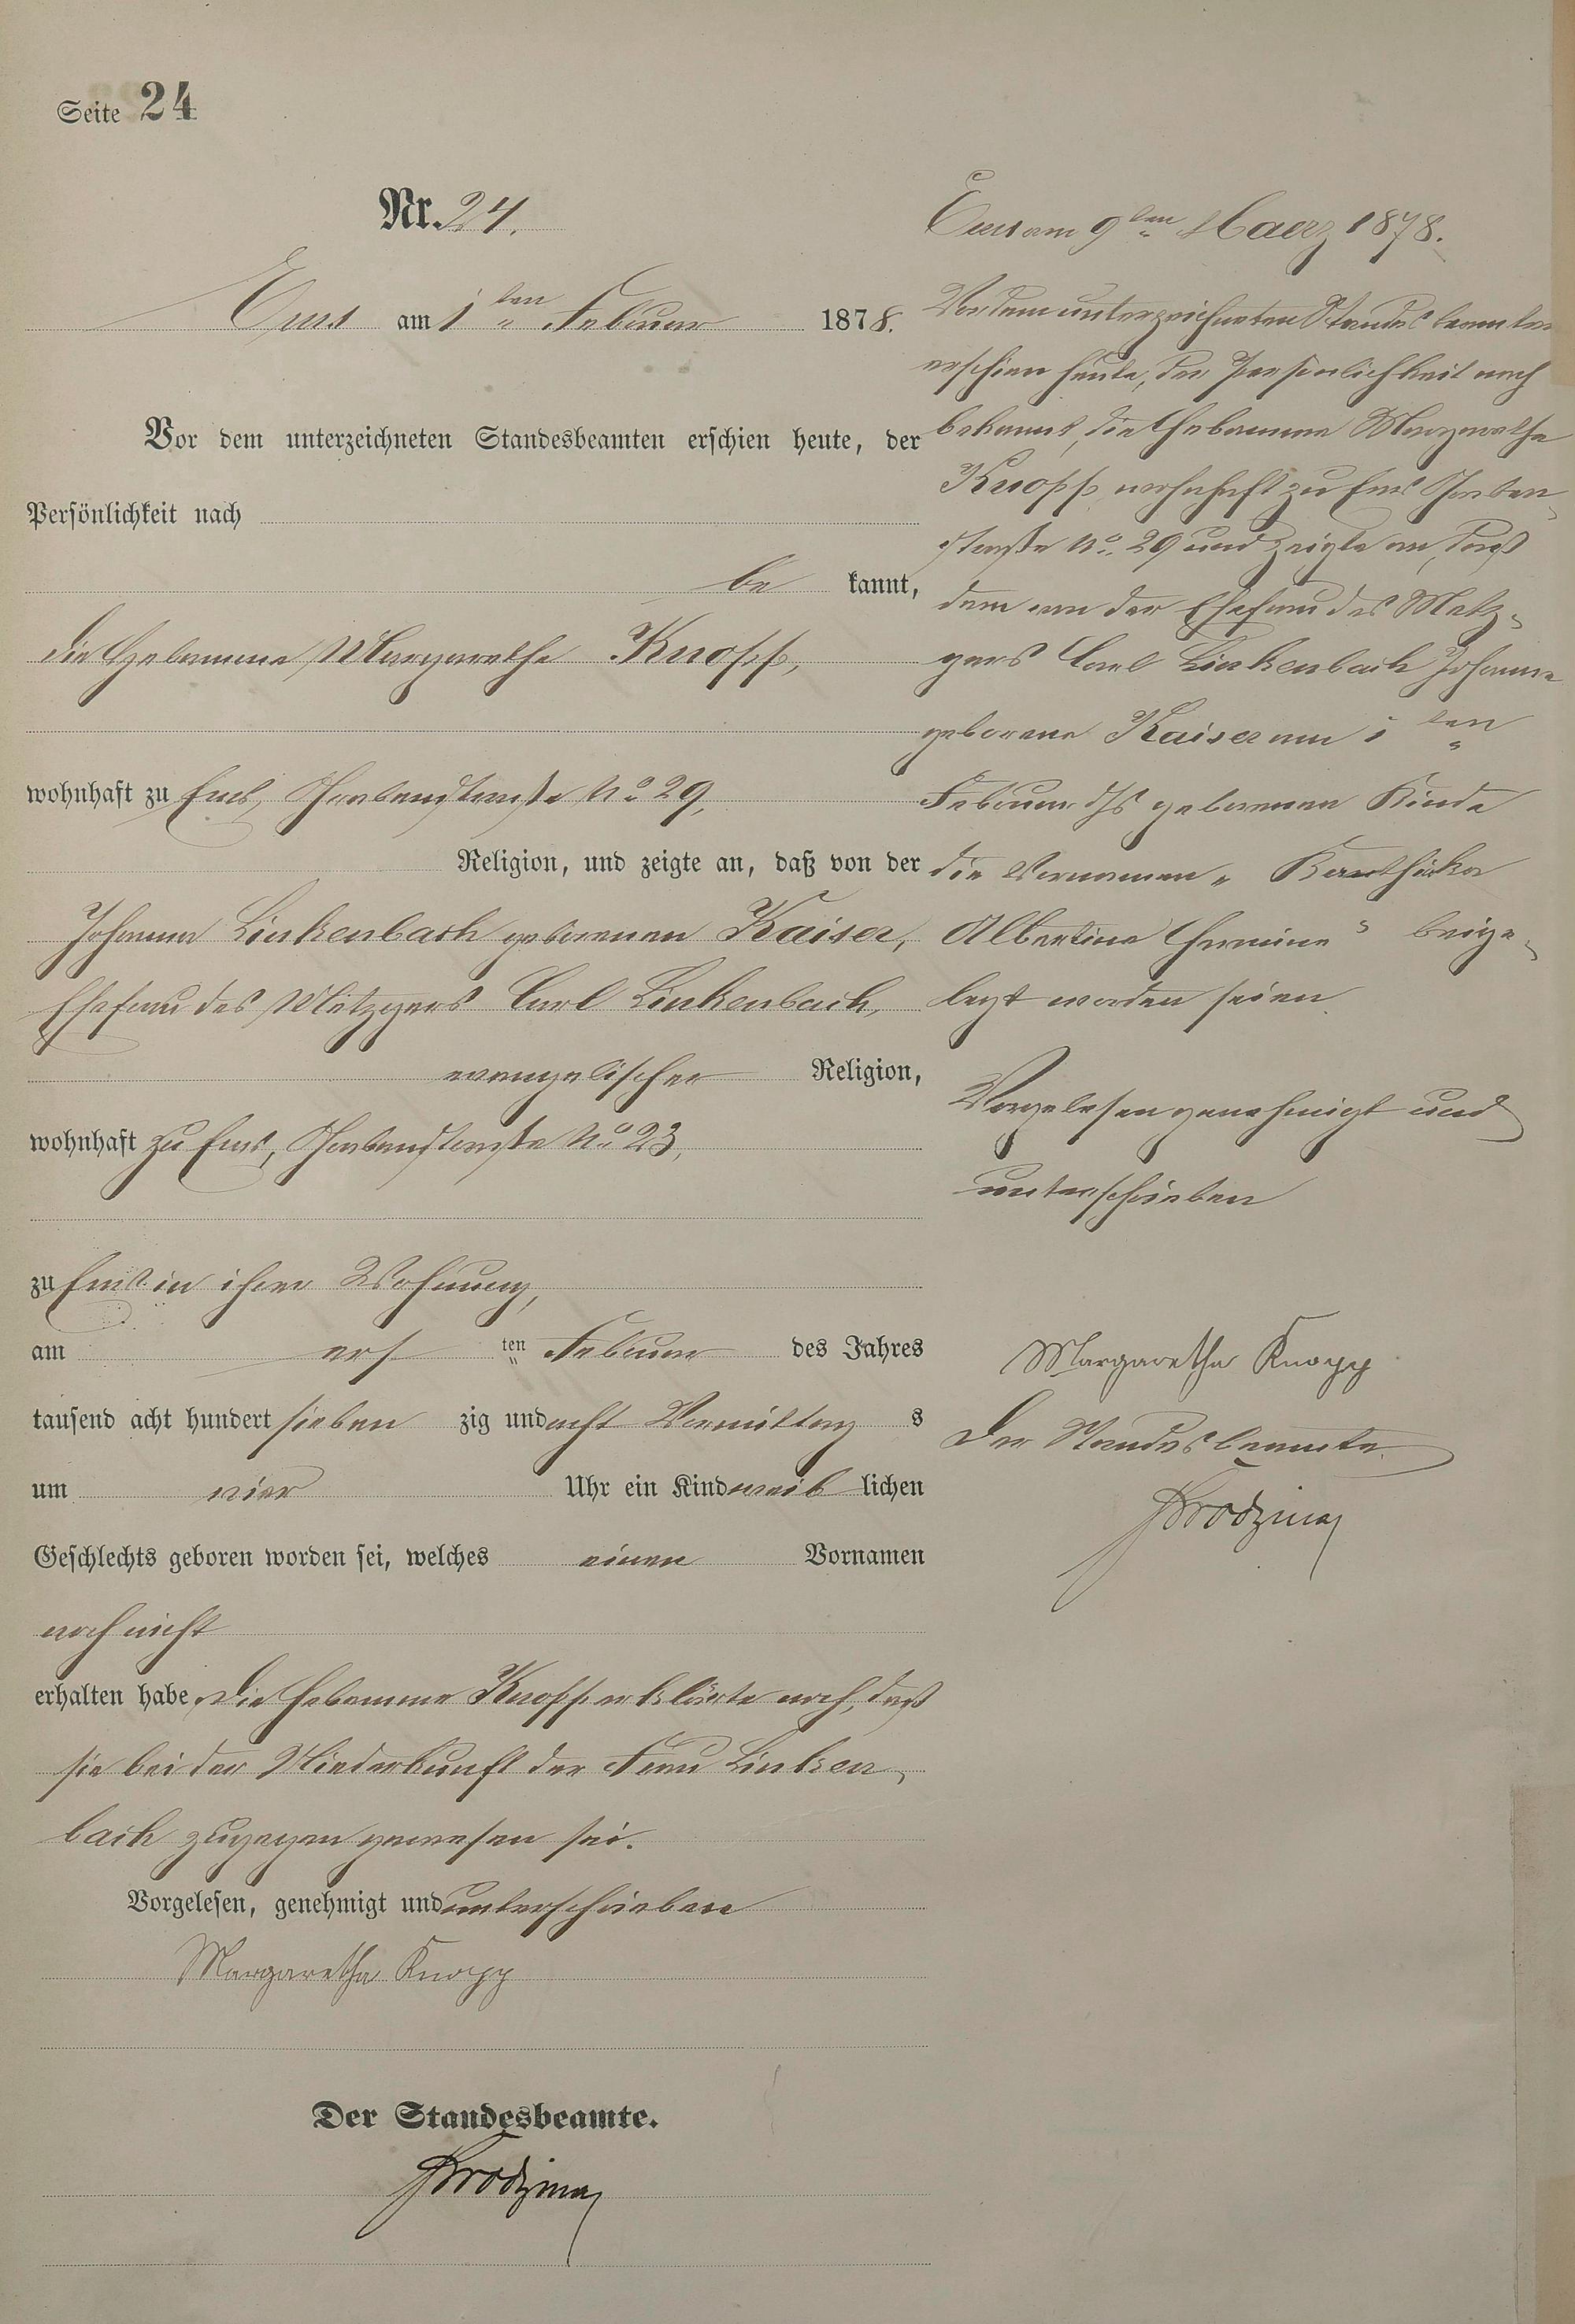 Seite 24
Nr. 24.
Ems am 1ten Februar 1878.
Vor dem unterzeichneten Standesbeamten erschien heute, der
Persönlichkeit nach
be kannt,
die Hebamme Margarethe Knopp,
wohnhaft zu Ems, Grabenstraße No 29,
Religion, und zeigte an, daß von der
Johanna Linkenbach geborenen Kaiser,
Ehefrau des Metzgers Carl Linkenbach,
evangelischer Religion,
wohnhaft zu Ems, Grabenstraße No 23,
zu Ems in ihrer Wohnung,
am ers ten Februar des Jahres
tausend acht hundert sieben zig und acht Vormittag s
um vier Uhr ein Kind weib lichen
Geschlechts geboren worden sei, welches einen Vornamen
noch nicht
erhalten habe. Die Hebamme Knopp erklärte noch, daß
sie bei der Niederkunft der Frau Linken-
bach zugegen gewesen sei.
Vorgelesen, genehmigt und unterschrieben
Margaretha Knopp
Der Standesbeamte.
Ems am 9ten Maerz 1878.
Vor dem unterzeichneten Standesbeamten
erschien heute, der Persönlichkeit nach
bekannt, die Hebamme Margarethe
Knopp wohnhaft zu Ems Graben-
straße No. 29 und zeigte an, daß
dem von der Ehefrau des Metz-
gers Carl Linkenbach Johanna
geborene Kaiser am 1ten
Februar ds Js geborenen Kinde
die Vornamen "
Albertine Hermine" beige-
legt worden seien.
Vorgelesen genehmigt und
unterschrieben
Margaretha Knopp
Der Standesbeamte.